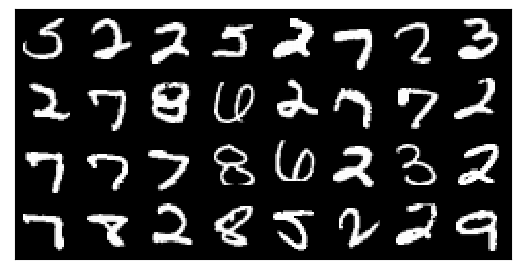 5 2 2 5 2 7 2 3
2 7 8 6 2 7 7 2
7 7 7 8 6 2 3 2
7 8 2 8 5 2 2 9